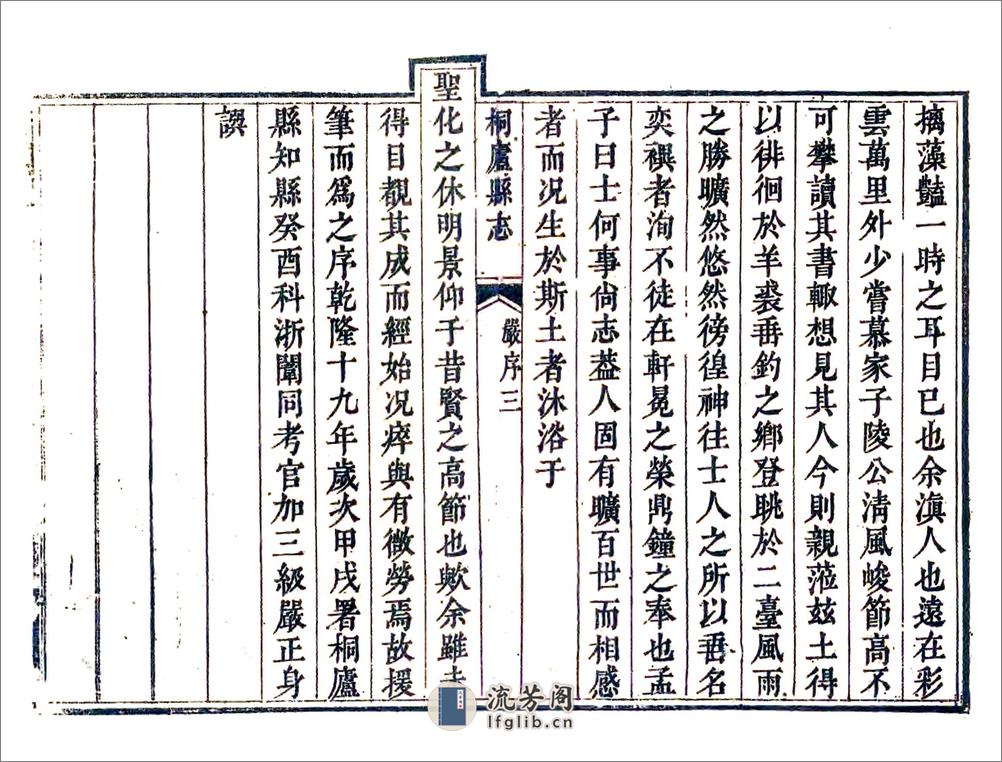 摛藻豔一時之耳目已也余滇人也遠在彩
雲萬里外少嘗慕家子陵公清風峻節高不
可攀讀其書輙想見其人今則親蒞玆土得
以徘徊於羊裘垂釣之鄉登眺於二臺風雨
之勝曠然悠然徬徨神往士人之所以垂名
奕禩者洵不徒在軒冕之榮鼎鐘之奉也孟
子曰士何事尙志葢人固有曠百世而相感
者而况生於斯土者沐浴于
桐廬縣志
嚴序 三
聖化之休明景仰于昔賢之高節也歟余雖
得目覩其成而經始况瘁與有微勞焉故援
筆而爲之序乾隆十九年歲次甲戌署桐廬
縣知縣癸酉科浙闈同考官加三級嚴正身
譔
流芳阁
lfglib.cn